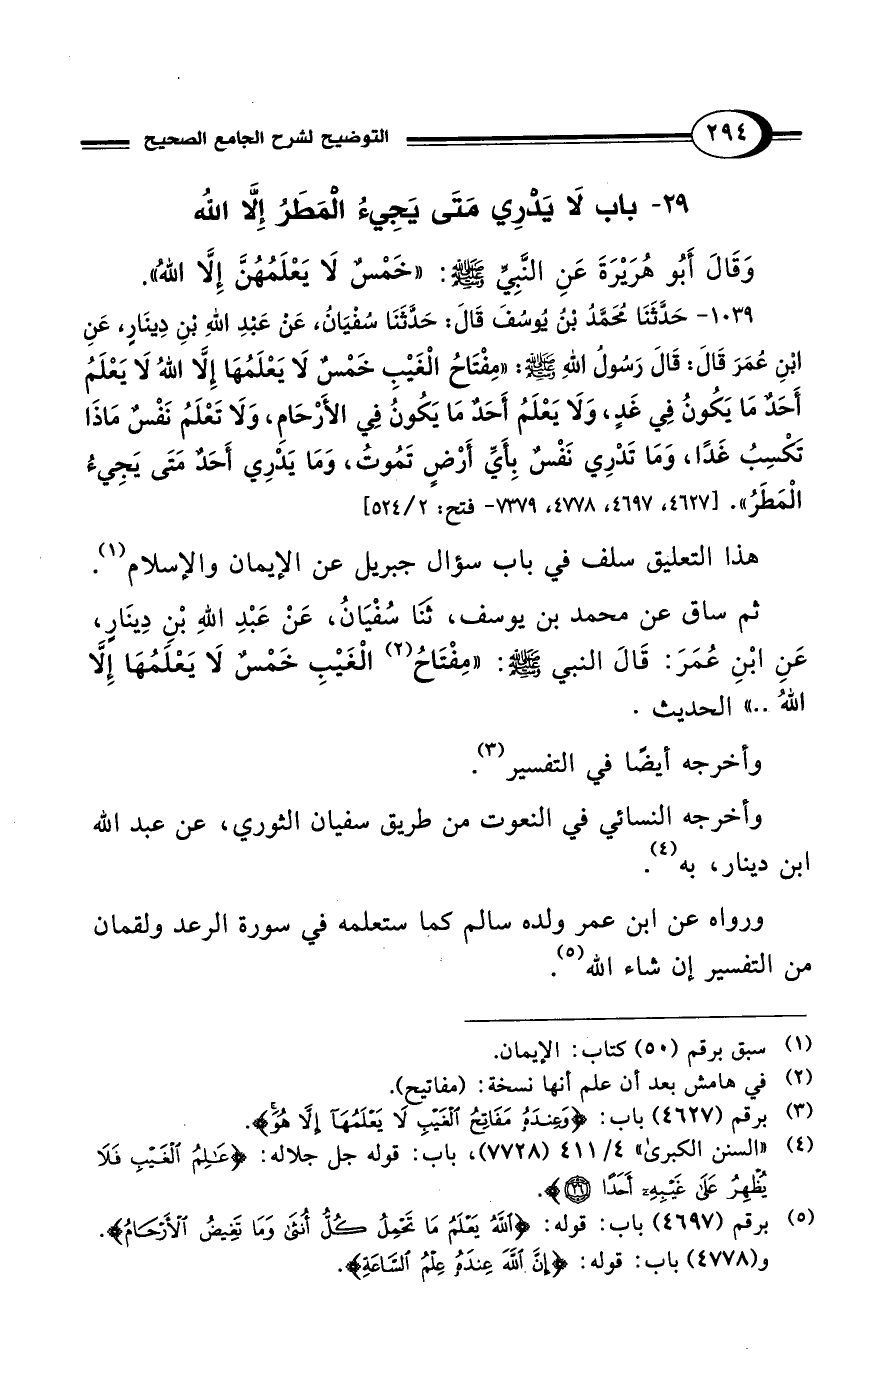 ٢٩٤ التوضيح لشرح الجامع الصحيح
٢٩- باب لَا يَدْرِي مَتَى يَجِيءُ الْمَطَرُ إِلَّا اللهُ
وَقَالَ أَبُو هُرَيْرَةَ عَنِ النَّبِيِّ ﷺ: «خَمْسٌ لَا يَعْلَمُهُنَّ إِلَّا اللهُ».
١٠٣٩- حَدَّثَنَا مُحَمَّدُ بْنُ يُوسُفَ قَالَ: حَدَّثَنَا سُفْيَانُ، عَنْ عَبْدِ اللهِ بْنِ دِينَارٍ، عَنِ
ابْنِ عُمَرَ قَالَ: قَالَ رَسُولُ اللهِ ﷺ: «مِفْتَاحُ الْغَيْبِ خَمْسٌ لَا يَعْلَمُهَا إِلَّا اللهُ لَا يَعْلَمُ
أَحَدٌ مَا يَكُونُ فِي غَدٍ، وَلَا يَعْلَمُ أَحَدٌ مَا يَكُونُ فِي الأَرْحَامِ، وَلَا تَعْلَمُ نَفْسٌ مَاذَا
تَكْسِبُ غَدًا، وَمَا تَدْرِي نَفْسٌ بِأَيِّ أَرْضٍ تَمُوتُ، وَمَا يَدْرِي أَحَدٌ مَتَى يَجِيءُ
الْمَطَرُ». [٤٦٢٧، ٤٦٩٧، ٤٧٧٨، ٧٣٧٩- فتح: ٥٢٤/٢]
هذا التعليق سلف في باب سؤال جبريل عن الإيمان والإسلام(١).
ثم ساق عن محمد بن يوسف، ثَنَا سُفْيَانُ، عَنْ عَبْدِ اللهِ بْنِ دِينَارٍ،
عَنِ ابْنِ عُمَرَ: قَالَ النبي ﷺ: «مِفْتَاحُ(٢) الْغَيْبِ خَمْسٌ لَا يَعْلَمُهَا إِلَّا
اللهُ ..» الحديث .
وأخرجه أيضًا في التفسير(٣).
وأخرجه النسائي في النعوت من طريق سفيان الثوري، عن عبد الله
ابن دينار، به(٤).
ورواه عن ابن عمر ولده سالم كما ستعلمه في سورة الرعد ولقمان
من التفسير إن شاء الله(٥).
(١) سبق برقم (٥٠) كتاب: الإيمان.
(٢) في هامش بعد أن علم أنها نسخة: (مفاتيح).
(٣) برقم (٤٦٢٧) باب: ﴿وَعِندَهُۥ مَفَاتِحُ ٱلْغَيْبِ لَا يَعْلَمُهَآ إِلَّا هُوَۚ﴾.
(٤) «السنن الكبرىٰ» ٤١١/٤ (٧٧٢٨)، باب: قوله جل جلاله: ﴿عَٰلِمُ ٱلْغَيْبِ فَلَا
يُظْهِرُ عَلَىٰ غَيْبِهِۦٓ أَحَدًا ۝٢٦﴾.
(٥) برقم (٤٦٩٧) باب: قوله: ﴿ٱللَّهُ يَعْلَمُ مَا تَحْمِلُ كُلُّ أُنثَىٰ وَمَا تَغِيضُ ٱلْأَرْحَامُ﴾.
و(٤٧٧٨) باب: قوله: ﴿إِنَّ ٱللَّهَ عِندَهُۥ عِلْمُ ٱلسَّاعَةِ﴾.